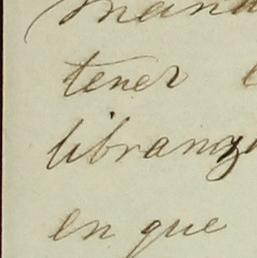 mand
tener
libranz
en que